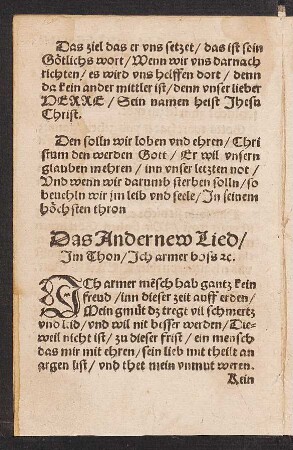 Das ziel das er vns setzet/ das ist sein
Götlichs wort/ Wenn wir vns darnach
richten/ es wird vns helffen dort/ denn
da kein ander mittler ist/ denn vnser lieber
HERRE/ Sein namen heist Jhesu
Christ.
Den solln wir loben vnd ehren/ Chri
stum den werden Gott/ Er wil vnsern
glauben mehren/ inn vnser letzten not/
Vnd wenn wir darumb sterben solln/ so
beuehln wir jm leib vnd seele/ In seinem
höchsten thron
Das Ander new Lied/
Im Thon/ Ich armer boss ꝛc.
ICh armer mẽsch hab gantz kein
freud/ inn dieser zeit auff erden/
Mein gmüt dz tregt vil schmertz
vnd leid/ vnd wil nit besser werden/ Die-
weil nicht ist/ zu dieser frist/ ein mensch
das mir mit ehren/ sein lieb mit theilt an
argen list/ vnd thet mein vnmut weren.
Kein